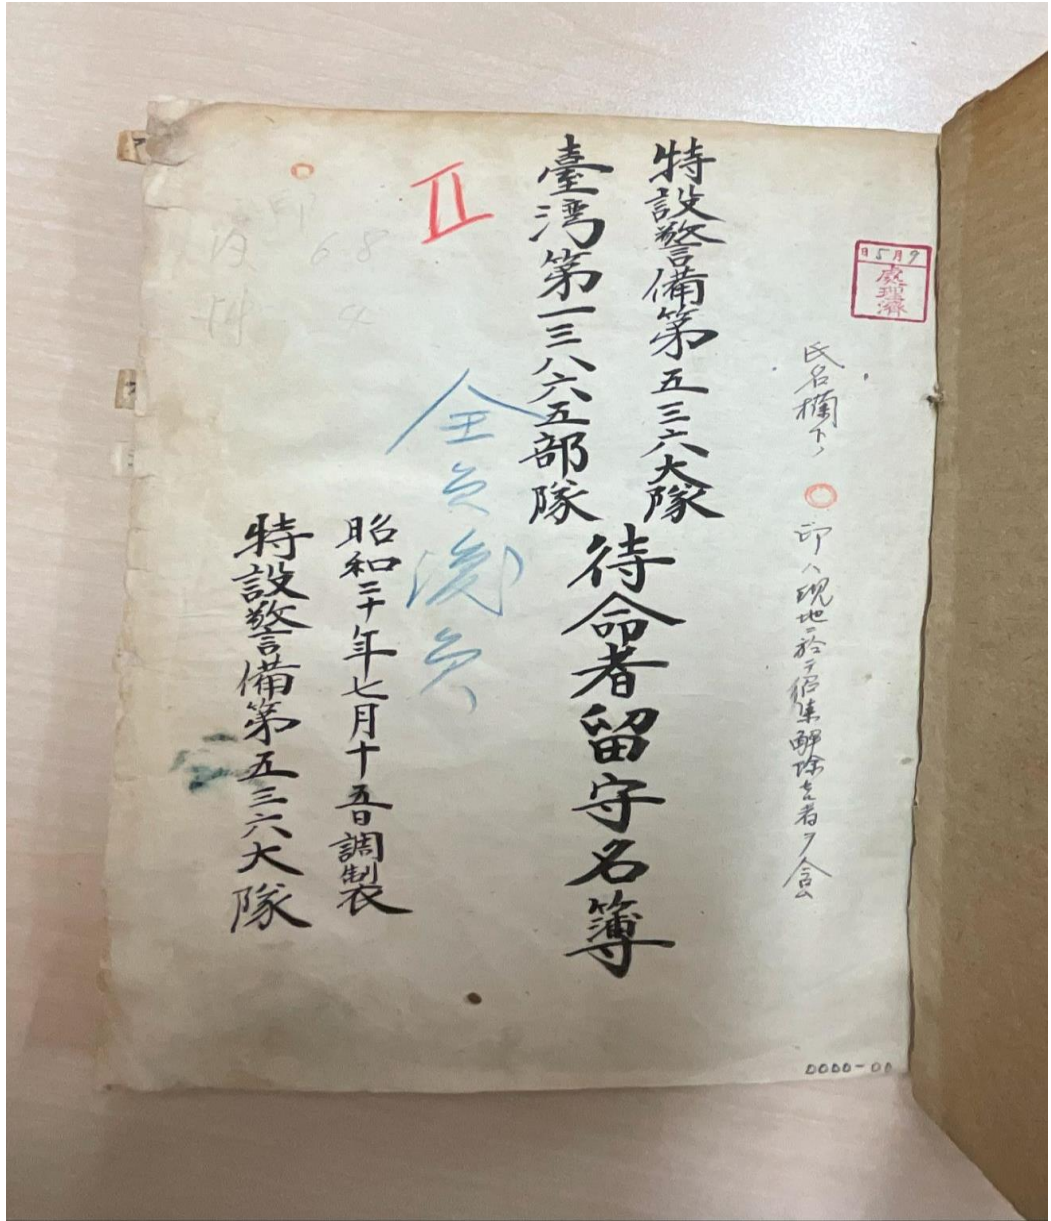 9月5日
處理濟
氏名欄下ノ ○ 印ハ現地ニ於テ召集解除セル者ヲ含ム
特設警備第五三六大隊
臺湾第一三八六五部隊
待命者留守名簿
II
全員復員
昭和二十年七月十五日調製
特設警備第五三六大隊
印
68
0000-00